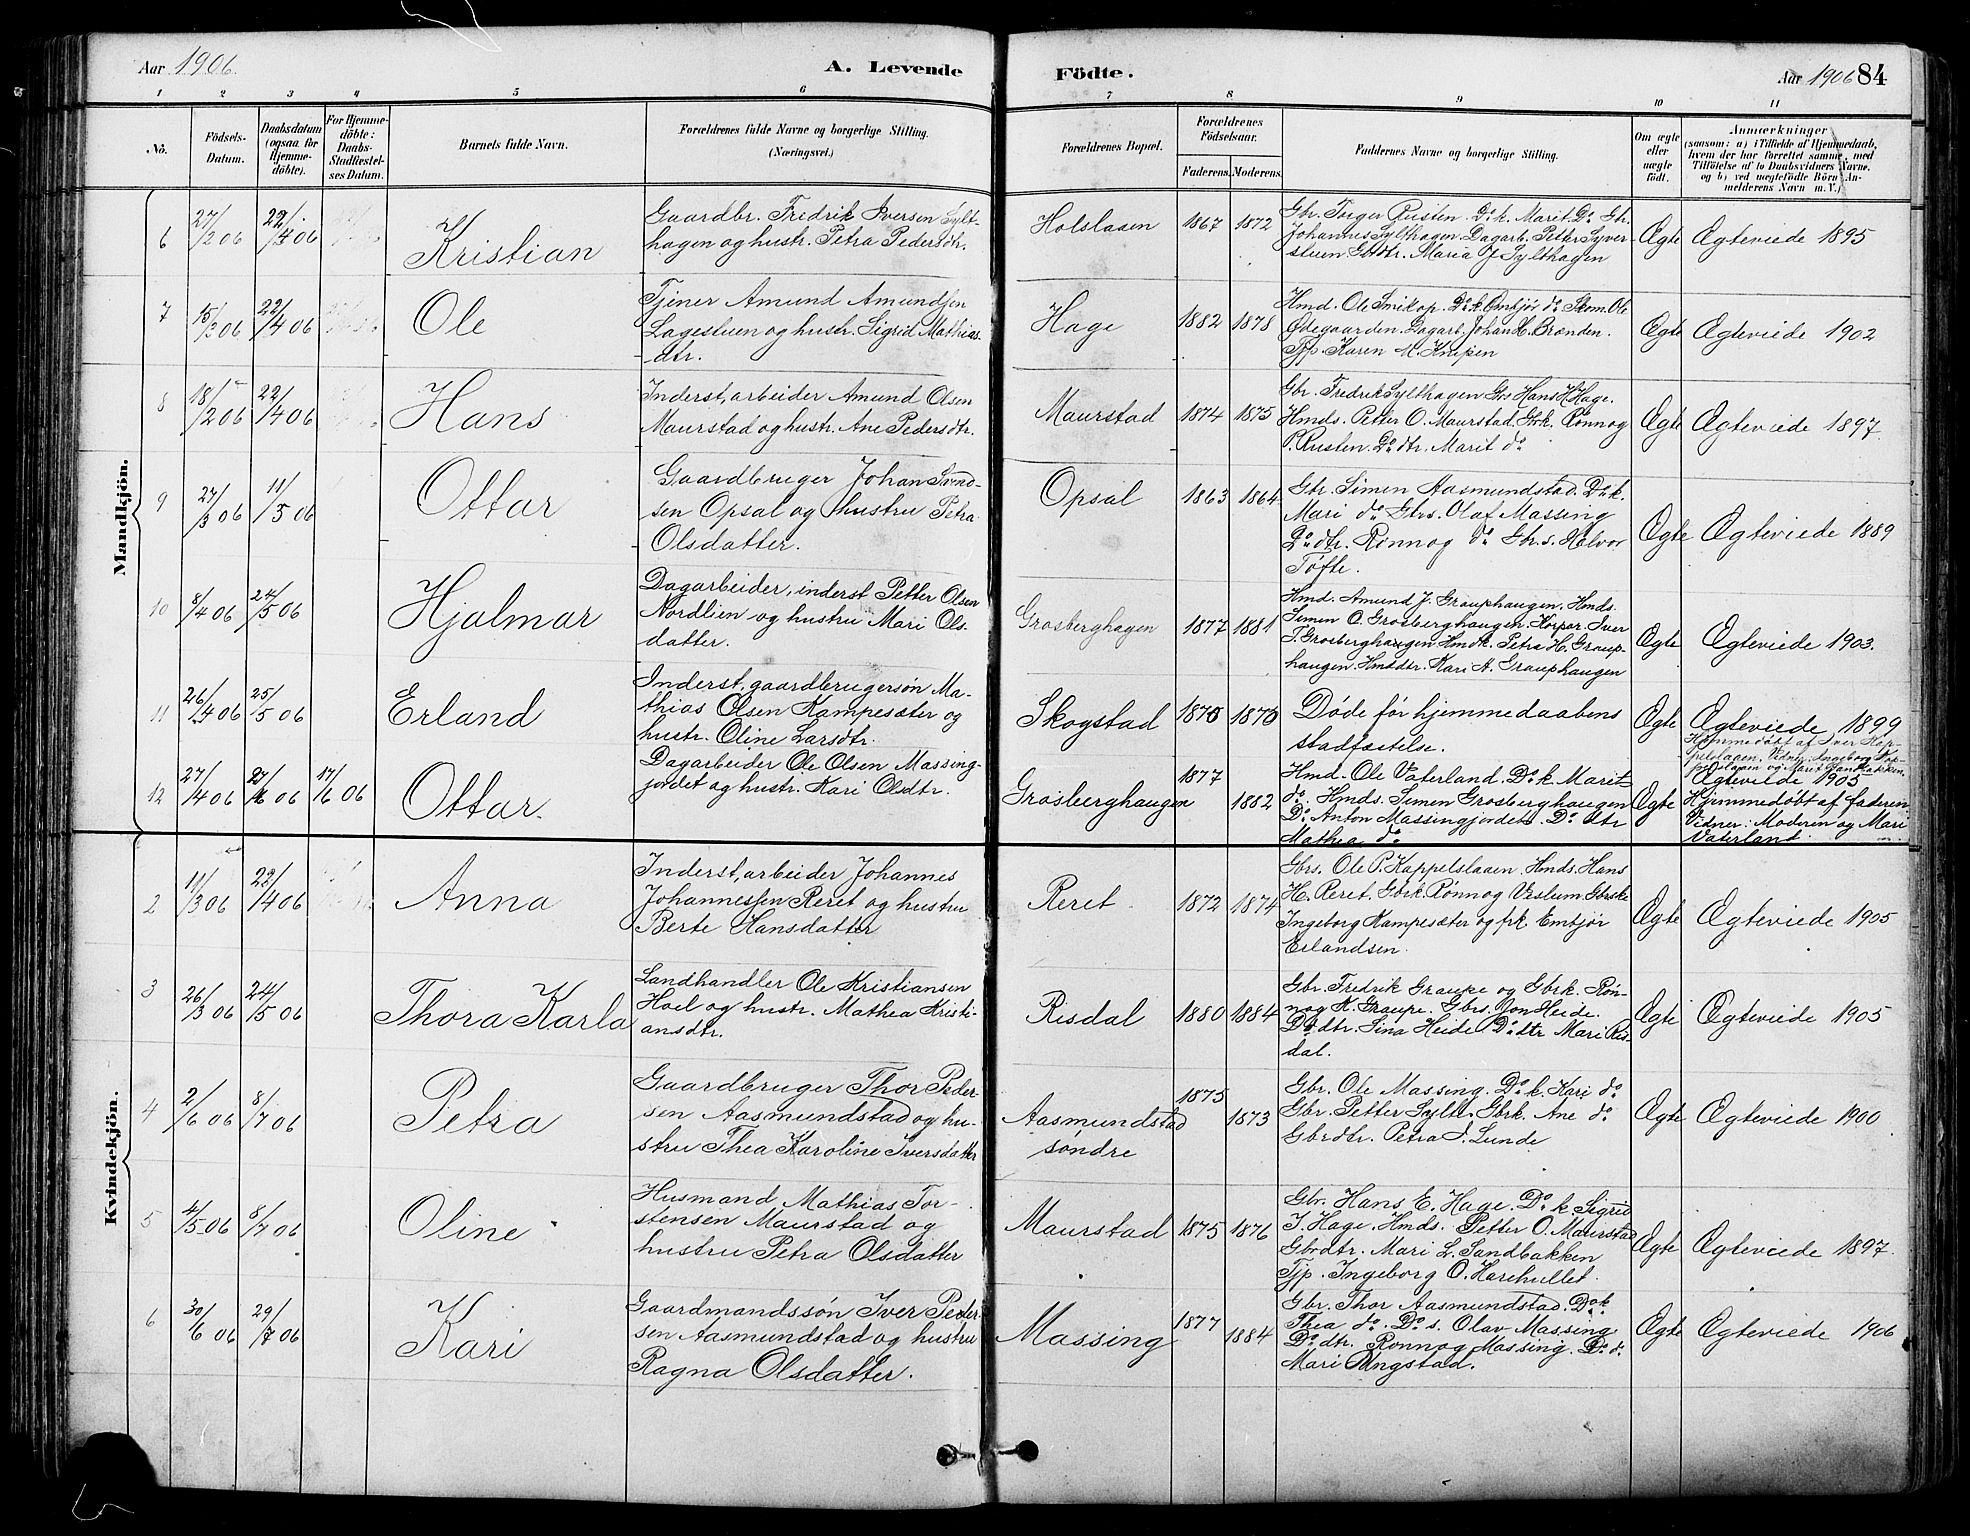 Aar 1906.
A. Levende
Födte.
Aar 1906 84
1 2 3 4 5 6 7 8 9 10 11
No.
Födsels-
Datum.
Daabsdatum
(ogsaa for
Hjemme-
döbte).
For Hjemme-
döbte:
Daabs-
Stadfæstel-
ses Datum.
Barnets fulde Navn.
Forældrenes fulde Navne og borgerlige Stilling.
(Næringsvei.)
Forældrenes Bopæl.
Forældrenes
Födselsaar.
Faderens. Moderens.
Faddernes Navne og borgerlige Stilling.
Om ægte
eller
uægte
födt.
Anmærkninger
(saasom: a) i Tilfælde af Hjemmedaab,
hvem der har forrettet samme, med
Tilföielse af to Daabsvidners Navne.
og b) ved uægtefödte Börn An-
melderens Navn m. V.)
Mandkjön.
6
27/2 06
22/4 06
Kristian
Gaardbr. Fredrik Iversen Sylt-
hagen og hustr. Petra Pedersdtr.
Holslaaen
1867 1872
Gbr. Torger Rusten. Do k. Marit Do Gbr.
Johannes Sylthagen. Dagarb. Petter Syver-
stuen. Gbdtr. Maria J Sylthagen
Ægte
Ægteviede 1895
7
15/3 06
22/4 06
Ole
Tjener Amund Amundsen
Lagestuen og hustr. Sigrid Mathias-
dtr.
Hage
1882 1878
Hmd. Ole Smikop. Do k. Embjør do Skom. Ole
Ødegaarden. Dagarb. Johan H. Brænden.
Tjp. Karen M. Knipen
Ægte
Ægteviede 1902
8
18/2 06
22/4 06
Hans
Inderst, arbeider Amund Olsen
Maurstad og hustr. Ane Pedersdtr.
Maurstad
1874 1875
Gbr. Fredrik Sylthagen Grs Hans H Hage.
Hmds. Petter O. Maurstad. Gbrk. Rønnog
P. Rusten. Do dtr. Marit do
Ægte
Ægteviede 1897
9
27/3 06
11/5 06
Ottar
Gaardbruger Johan Svend-
sen Opsal og hustru Petra
Olsdatter.
Opsal
1863 1864
Gbr. Simen Aasmundstad. Do k.
Mari do Gbrs. Olaf Massing
Do dtr. Rønnog do Gbr. s. Halvor
Tofte.
Ægte
Ægteviede 1889
10
8/4 06
24/5 06
Hjalmar
Dagarbeider, inderst Petter Olsen
Nordlien og hustru Mari Ols-
datter.
Grosberghagen
1877 1881
Hmd. Amund J. Grauphaugen. Hmds.
Simen O. Grosberghaugen. Korpor. Iver
T. Grosberghaugen Hmdk. Petra H. Graup-
haugen. Hmdsdtr. Kari A. Grauphaugen
Ægte
Ægteviede 1903.
11
26/4 06
25/5 06
Erland
Inderst, gaardbrugersøn Ma-
thias Olsen Kampesæter og
hustr. Oline Larsdtr.
Skogstad
1870 1870
Døde før hjemmedaabens
stadfæstelse.
Ægte
Ægteviede 1899
Hjemmedøbt af Iver Kap-
pelslaaen. Vidner: Ingeborg Kap-
pelslaaen og Marit Sandbakken.
12
27/4 06
27/6 06
17/6 06
Ottar.
Dagarbeider Ole Olsen Massing-
jordet og hustr. Kari Olsdtr.
Grosberghaugen
1877
1882
Hmd. Ole Vaterland. Do k. Marit
do. Hmds. Simen Grosberghaugen
Do Anton Massingjordet. Do dtr
Mathea do
Ægte
Ægteviede 1905
Hjemmedøbt af faderen
Vidner: Moderen og Mari
Vaterland.
Kvindekjön.
2
11/3 06
22/4 06
Anna
Inderst, arbeider Johannes
Johannessen Reret og hustru
Berte Hansdatter
Reret
1872 1874
Gbrs. Ole P. Kappelslaaen. Hmds. Hans
H. Reret. Gbrk. Rønnog Veslum. Gbrske
Ingeborg Kampesæter og frk Embjør
Erlandsen.
Ægte
Ægteviede 1905
3
26/3 06
24/5 06
Thora Karla
Landhandler Ole Kristiansen
Hoel og hustr. Mathea Kristi-
ansdtr.
Risdal
1880 1884
Gbr. Fredrik Graupe og Gbrk. Røn-
nog K. Graupe. Gbrs. Jon Heide.
Do dtr. Sina Heide Do dtr Mari Ris-
dal.
Ægte
Ægteviede 1905
4
2/6 06
8/7 06
Petra
Gaardbruger Thor Peder-
sen Aasmundstad og hu-
stru Thea Karoline Iversdatter
Aasmundstad
søndre
1875
1873
Gbr. Ole Massing. Do k. Kari do
Gbr. Petter Sylte. Gbrk. Ane do
Gbrdtr. Petra I. Lunde
Ægte
Ægteviede 1900
5
4/5 06
8/7 06
Oline
Husmand Mathias Tor-
stensen Maurstad og
hustru Petra Olsdatter
Maurstad
1875 1876
Gbr. Hans E. Hage. Do k. Sigrid
I. Hage. Hmds. Petter O. Maurstad
Gbrdtr. Mari L. Sandbakken
Tjp. Ingeborg O. Harehullet.
Ægte
Ægteviede 1897.
6
30/6 06
29/7 06
Kari
Gaardmandssøn Iver Peder-
sen Aasmundstad og hustru
Ragna Olsdatter.
Massing
1877
1884
Gbr. Thor Aasmundstad. Do k
Thea do. Do s. Olav Massing
Do dtr. Rønnog Massing. Do d.
Mari Ringstad.
Ægte
Ægteviede 1906